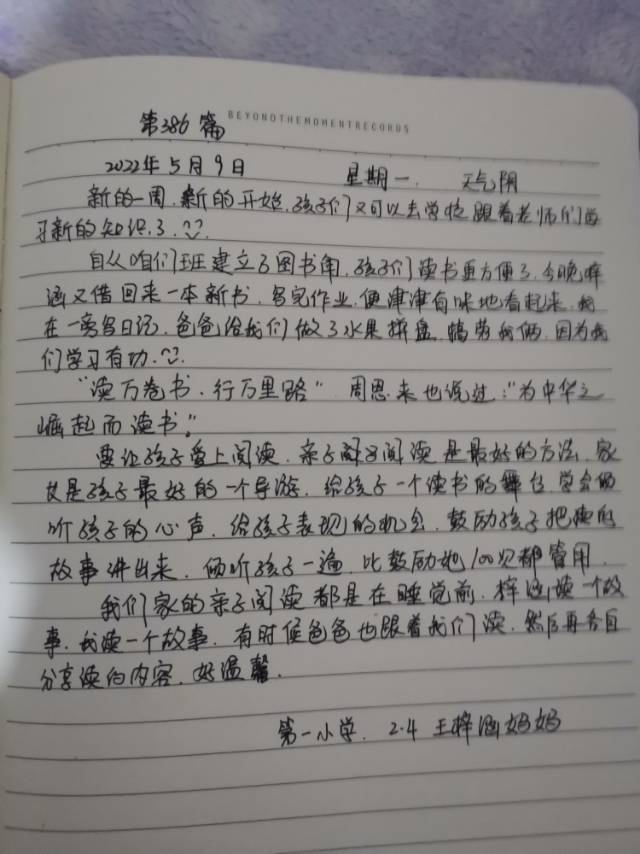 BEYONDTHEMOMENTRECORDS
第386篇
2022年5月9日 星期一 天气阴
新的一周,新的开始,孩子们又可以去学校跟着老师们学
习新的知识了.
自从咱们班建立了图书角,孩子们读书更方便了,今晚梓
涵又借回来一本新书,写完作业,便津津有味地看起来,我
在一旁写日记,爸爸给我们做了水果拼盘,犒劳我俩,因为我
们学习有功.
"读万卷书,行万里路" 周恩来也说过:"为中华之
崛起而读书."
要让孩子爱上阅读,亲子阅读是最好的方法,家
长是孩子最好的一个导游,给孩子一个读书的舞台,学会倾
听孩子的心声,给孩子表现的机会,鼓励孩子把读的
故事讲出来,倾听孩子一遍,比鼓励她100次都管用.
我们家的亲子阅读都是在睡觉前,梓涵读一个故
事,我读一个故事,有时候爸爸也跟着我们读,然后再各自
分享读的内容,好温馨.
第一小学, 2.4 王梓涵妈妈